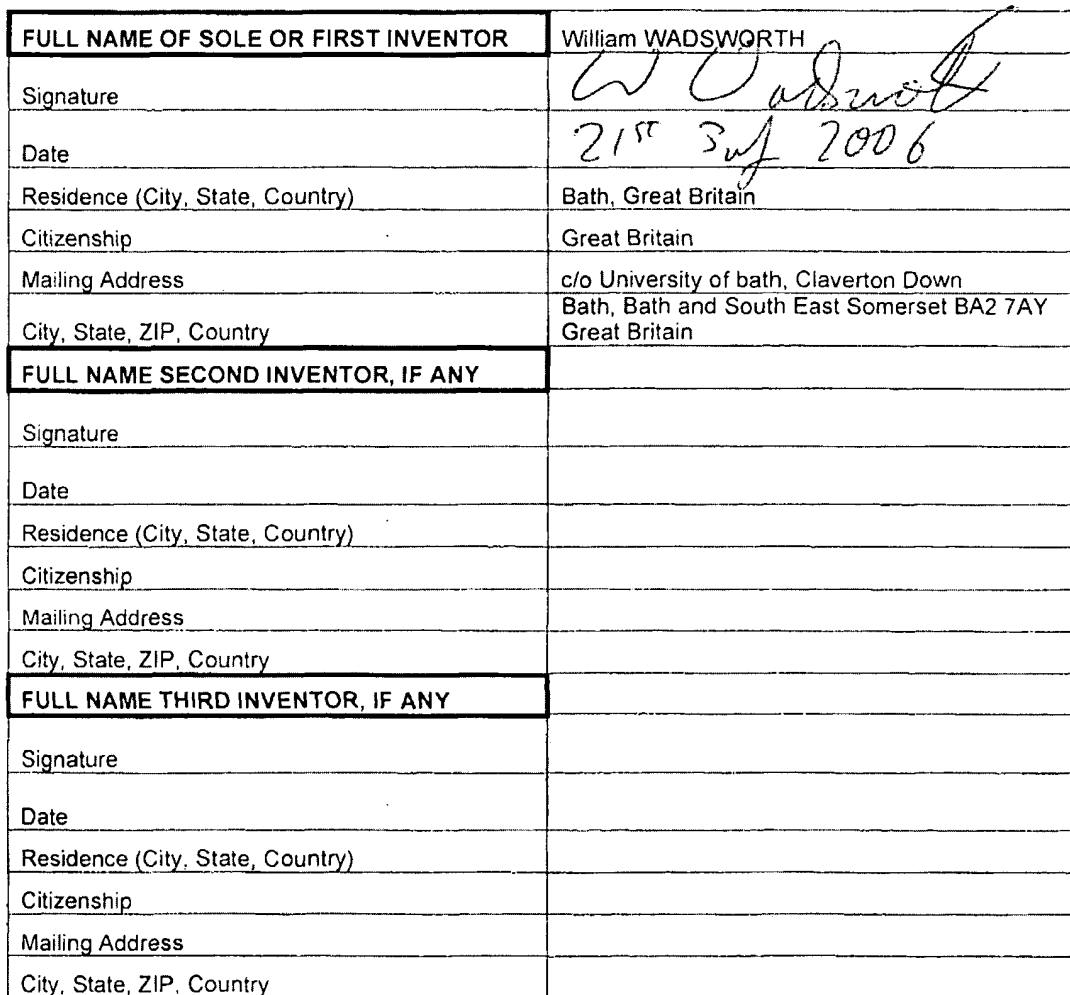 FULL NAME OF SOLE OR FIRST INVENTOR William WADSWORTH
Signature W Wadsworth
Date 21st 2006
Residence (City, State, Country) Bath, Great Britain
Citizenship Great Britain
Mailing Address c/o University of bath, Claverton Down
Bath, Bath and South East Somerset BA2 7AY
City, State, ZIP, Country Great Britain
FULL NAME SECOND INVENTOR, IF ANY
Signature
Date
Residence (City, State, Country)
Citizenship
Mailing Address
City, State, ZIP, Country
FULL NAME THIRD INVENTOR, IF ANY
Signature
Date
Residence (City, State, Country)
Citizenship
Mailing Address
City, State, ZIP, Country